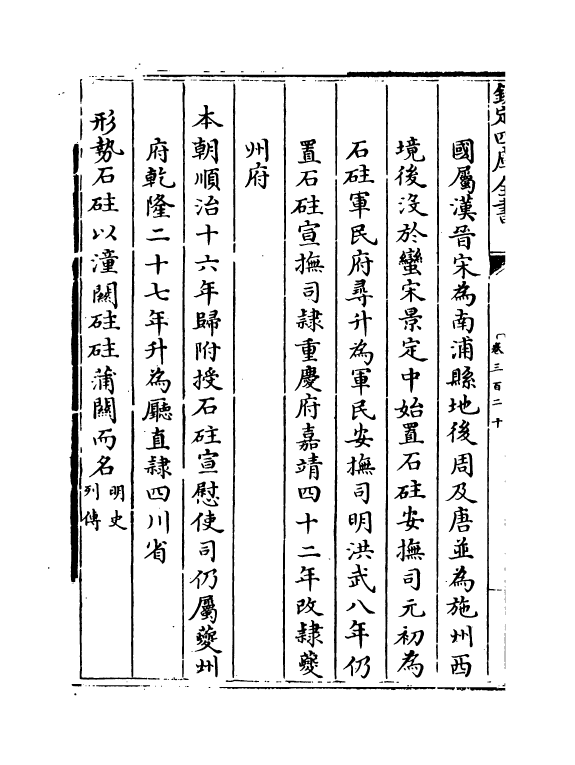 欽定四庫全書
卷三百二十
國屬漢晉宋為南浦縣地後周及唐並為施州西
境後没於蠻宋景定中始置石砫安撫司元初為
石砫軍民府尋升為軍民安撫司明洪武八年仍
置石砫宣撫司隸重慶府嘉靖四十二年改隸夔
州府
本朝順治十六年歸附授石砫宣慰使司仍屬夔州
府乾隆二十七年升為廳直隸四川省
形勢石砫以潼關砫砫蒲關而名明史
列傳